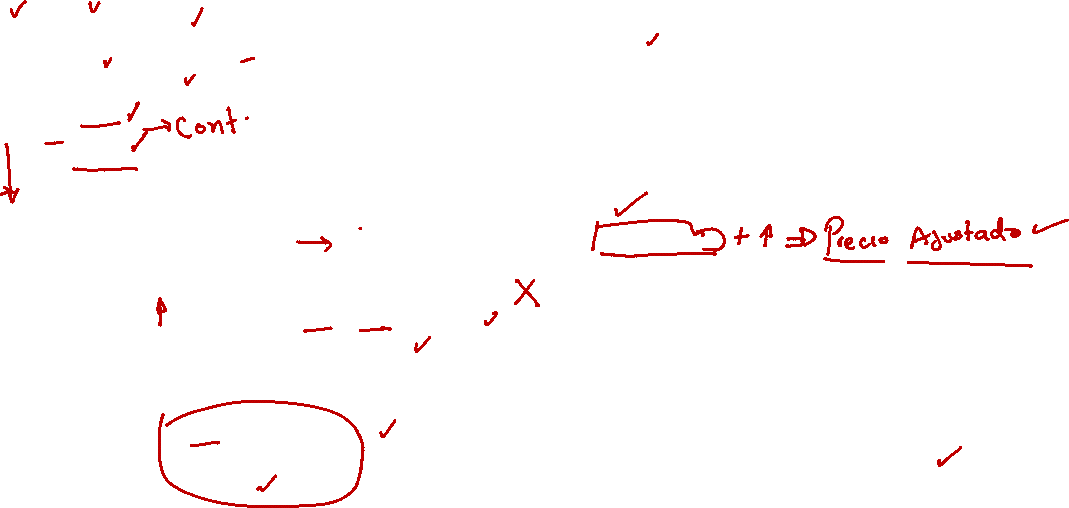 → Cont.
+ ↑ ⇒ Precio Ajustado ✓